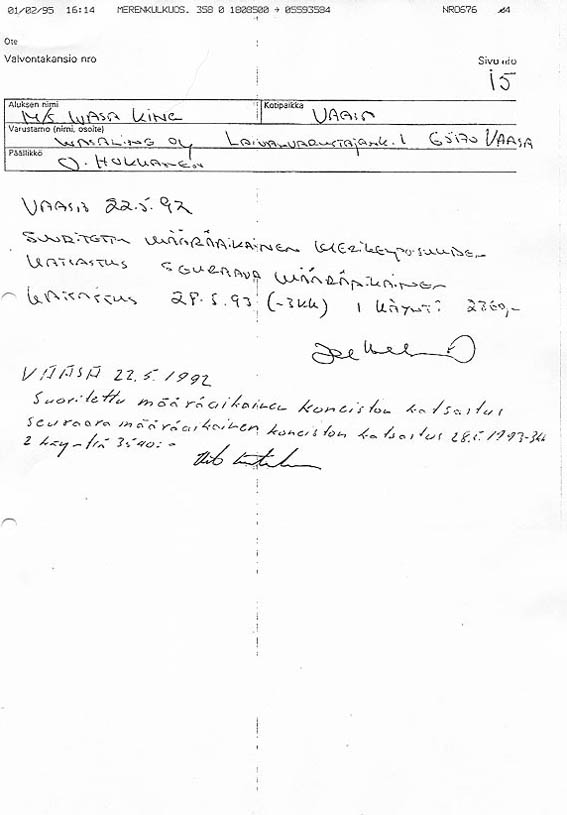 01/02/95 16:14 MERENKULKUDS. 358 0 1808500 → 05593584 NRO676
Ote
Valvontakansio nro
Sivu
15
Aluksen nimi
M/S WASA KING
Kotipaikka
VAASA
Varustamo (nimi, osoite)
WASALINE OY LAIVANVARUSTAJANK. 1 65170 VAASA
Päällikkö
O. HUKKANEN
VAASA 22.5.92
SUORITETTU MÄÄRÄAIKAINEN MERIKELPOISUUDEN
KATSASTUS SEURAAVA MÄÄRÄAIKAINEN
KATSASTUS 28.5.93 (-3KK) 1 KÄYNTI 2360,-
VAASA 22.5.1992
Suoritettu määräaikainen koneiston katsastus
seuraava määräaikainen koneiston katsastus 28.5.1993-3kk
2 käyntiä 3540:-